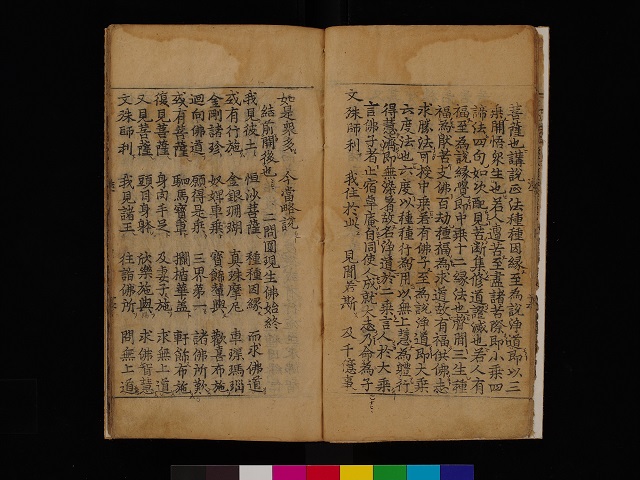 菩薩也講說正法種種因緣至爲說淨道即以三
乘開悟衆生也若人遭苦至盡諸苦際即小乘四
諦法四句如次配見苦斷集修道證滅也若人有
福至爲說緣覺即中乘十二緣法也齊聞三生種
福爲文佛百劫種福爲求道故有福供佛志
求勝法可授中乘若有佛子至爲說淨道即大乘
六度法也六度以種種行爲用以無上慧爲體行
得慧濟即無染著故名淨道於二乘言人於大乘
言佛子者止宿草庵自同使人成就大事乃命爲子
文殊師利 我住於此 見聞若斯 及千億事
如是衆多 今當略說
結前開後也 二問圓現生佛始終
我見彼土 恒沙菩薩 種種因緣 而求佛道
或有行施 金銀珊瑚 真珠摩尼 車璖瑪瑙
金剛諸珍 奴婢車乘 寶飾輦輿 歡喜布施
迴向佛道 願得是乘 三界第一 諸佛所歎
或有菩薩 駟馬寶車 欄楯華蓋 軒飾布施
復見菩薩 身肉手足 及妻子施 求無上道
又見菩薩 頭目身體 欣樂施與 求佛智慧
文殊師利 我見諸王 往詣佛所 問無上道